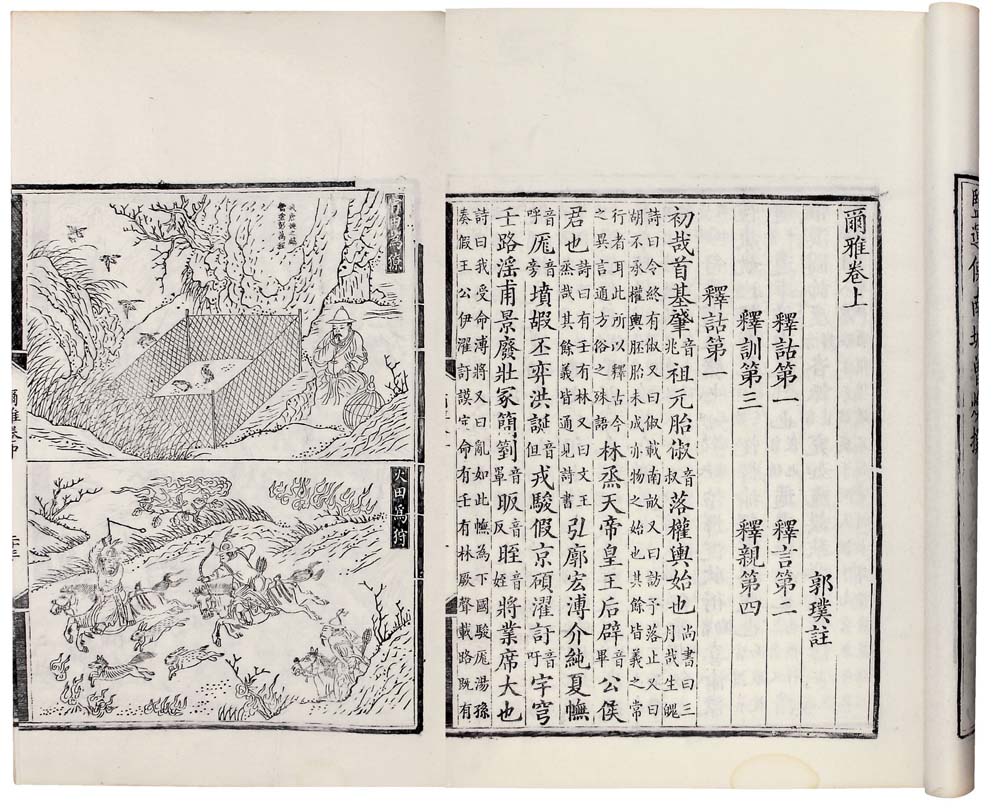 爾雅卷上
郭璞註
釋詁第一 釋言第二
釋訓第三 釋親第四
釋詁第一
初哉首基肇音兆祖元胎俶音叔落權輿始也尚書曰三月哉生魄
詩曰令終有俶又曰俶載南畝又曰訪予落止又曰胡不承權輿胚胎未成亦物之始也其餘皆義之常
行者耳此所以釋古今之異言通方俗之殊語林烝天帝皇王后辟音畢公侯
君也詩曰有壬有林又曰文王烝哉其餘義皆通見詩書弘廓宏溥介純夏幠
音呼厖音旁墳嘏丕弈洪誕音但戎駿假京碩濯訏音吁宇穹
壬路淫甫景廢壯冢簡箌音罩昄音反晊音姪將業席大也
詩曰我受命溥將又曰亂如此幠為下國駿厖湯孫奏假王公伊濯訏謨定命有壬有林厥聲載路既有
火田為狩
爾雅卷中